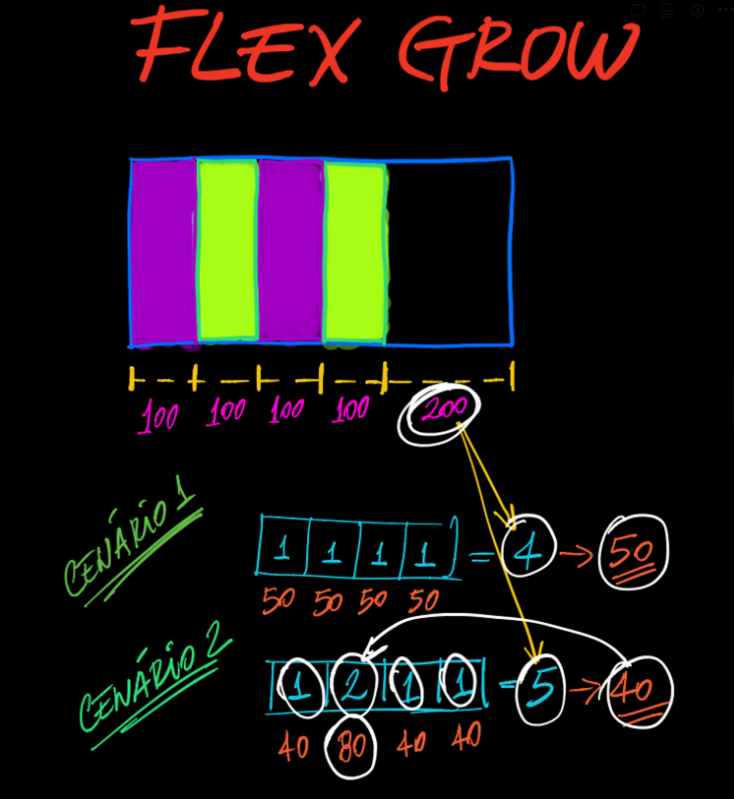 FLEX GROW
100 100 100 100 200
CENÁRIO 1
1 1 1 1 = 4 → 50
50 50 50 50
CENÁRIO 2
1 2 1 1 = 5 → 40
40 80 40 40